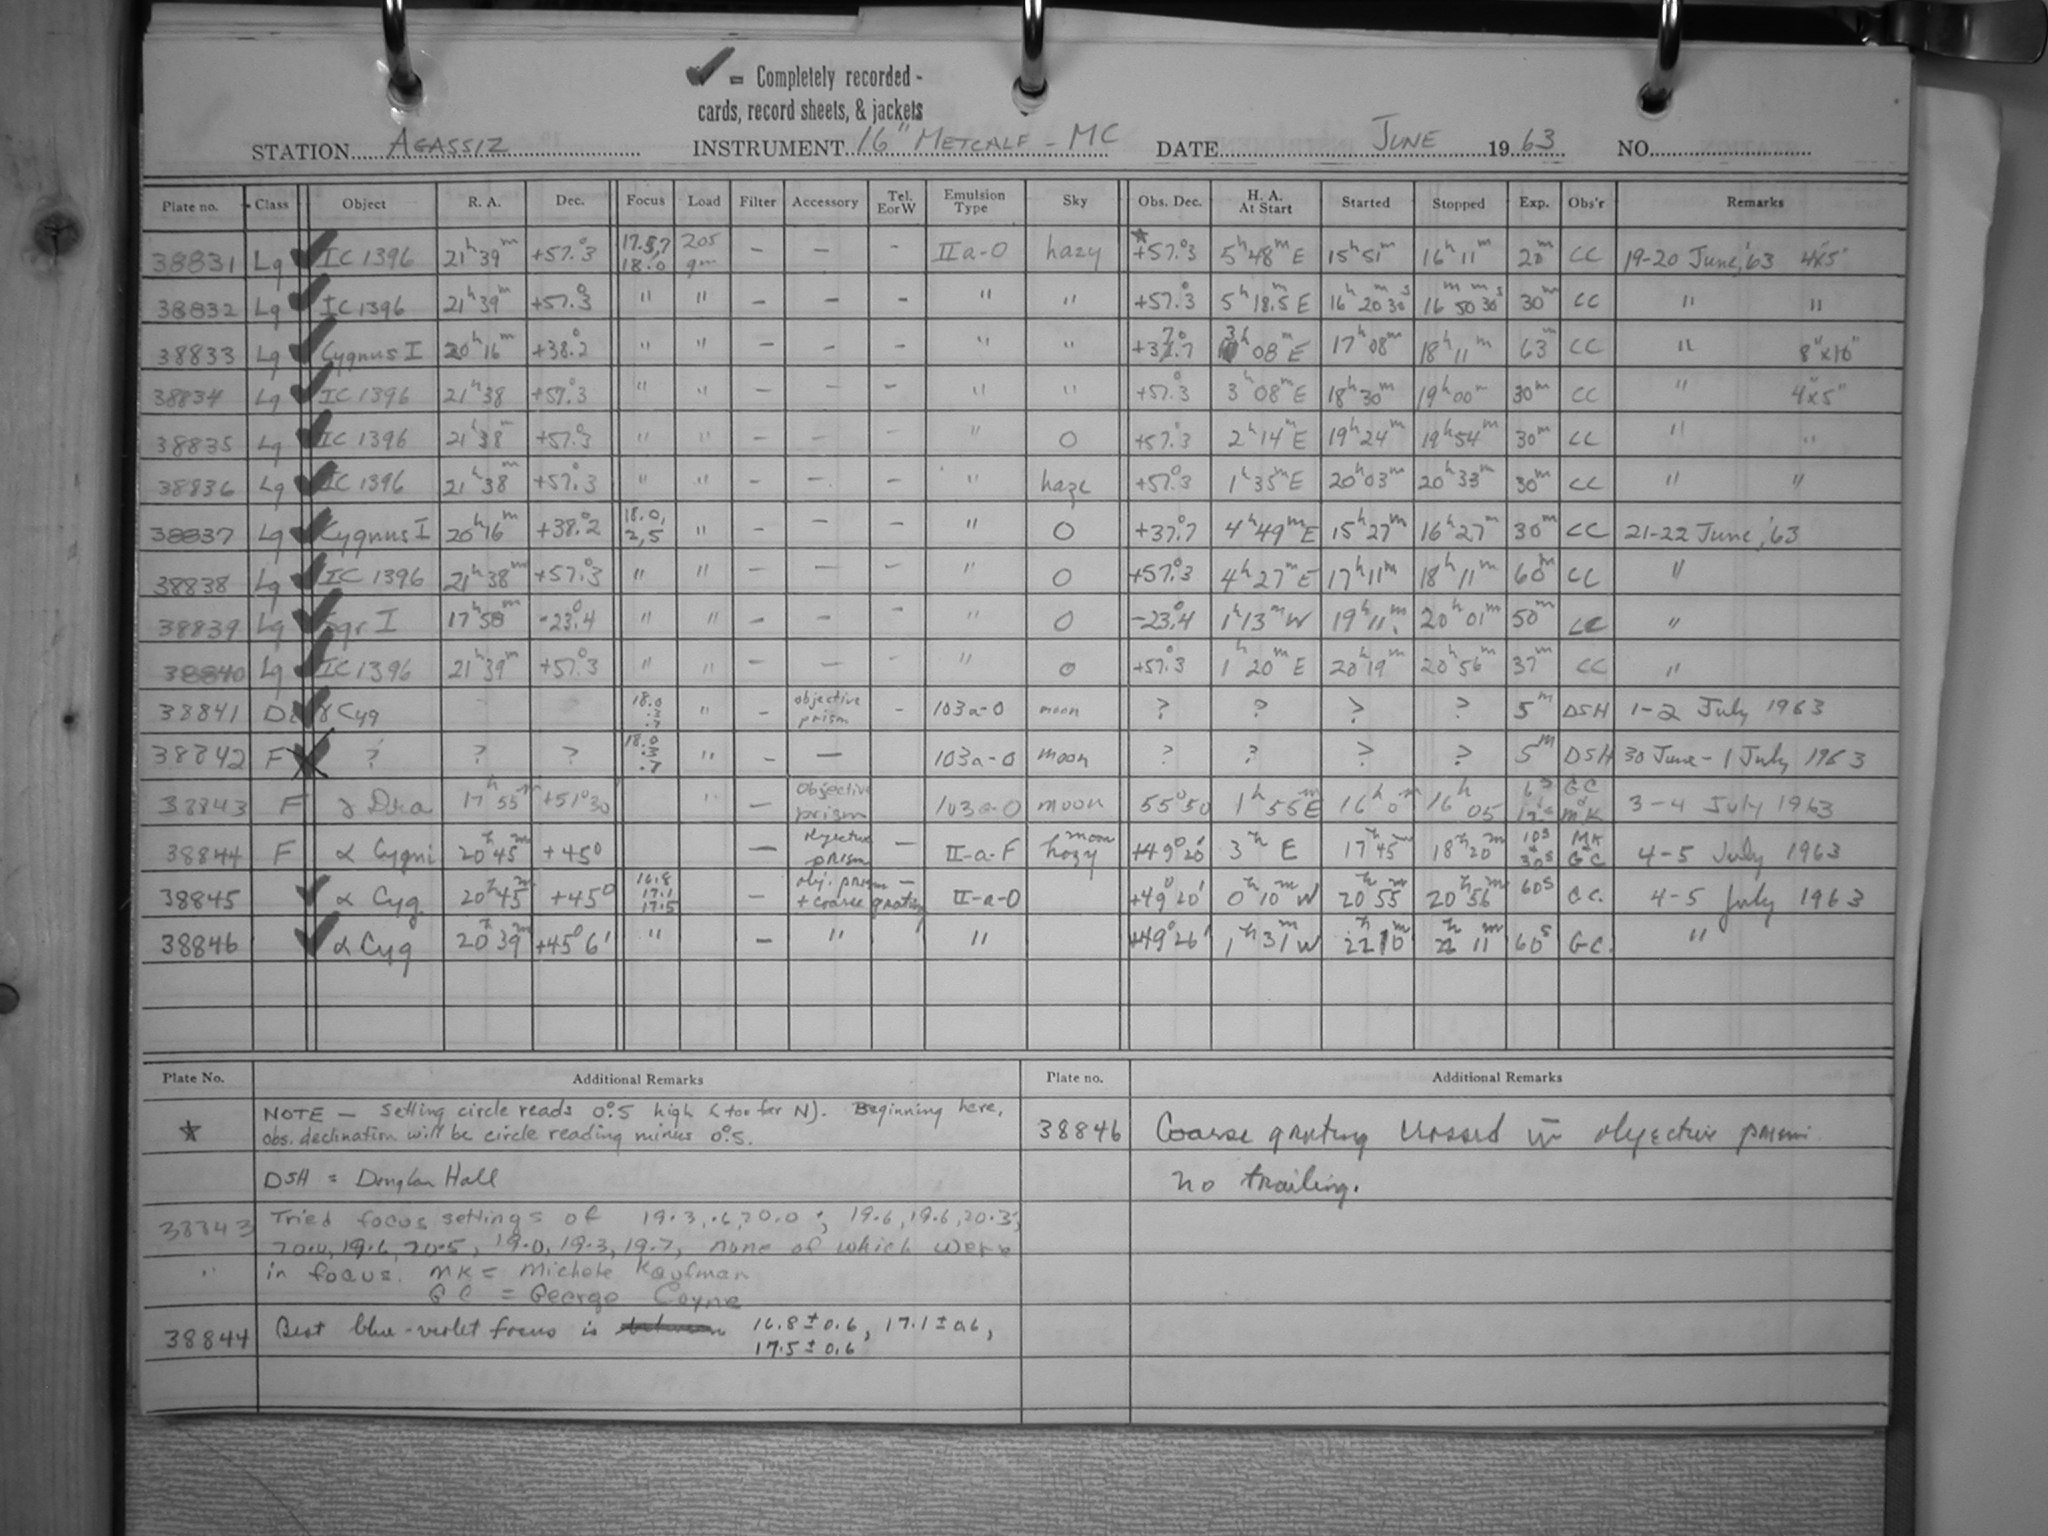 ✓ = Completely recorded -
cards, record sheets, & jackets
STATION AGASSIZ INSTRUMENT 16" METCALF - MC DATE JUNE 1963 NO.
Plate no. Class Object R. A. Dec. Focus Load Filter Accessory Tel. E or W Emulsion Type Sky Obs. Dec. H. A. At Start Started Stopped Exp. Obs'r Remarks
38831 Lg ✓ IC 1396 21h 39m +57°.3 17.5,7 18.0 205 gm - - - IIa-O hazy * +57°.3 5h 48m E 15h 51m 16h 11m 20m CC 19-20 June, '63 4x5"
38832 Lg ✓ IC 1396 21h 39m +57°.3 " " - - - " " +57.3 5h 18m.5 E 16h 20m 30s 16 50m 30s 30m CC " "
38833 Lg ✓ Cygnus I 20h 16m +38.2 " " - - - " " +37°.7 3h 08m E 17h 08m 18h 11m 63m CC " 8"x10"
38834 Lg ✓ IC 1396 21h 38 +57°.3 " " - - - " " +57°.3 3h 08m E 18h 30m 19h 00m 30m CC " 4x5"
38835 Lg ✓ IC 1396 21h 38m +57°.3 " " - - - " O +57°.3 2h 14m E 19h 24m 19h 54m 30m CC " "
38836 Lg ✓ IC 1396 21h 38m +57°.3 " " - - - " haze +57°.3 1h 35m E 20h 03m 20h 33m 30m CC " "
38837 Lg ✓ Cygnus I 20h 16m +38°.2 18.0, 2,5 " - - - " O +37°.7 4h 49m E 15h 27m 16h 27m 30m CC 21-22 June, '63
38838 Lg ✓ IC 1396 21h 38m +57°.3 " " - - - " O +57°.3 4h 27m E 17h 11m 18h 11m 60m CC "
38839 Lg ✓ Sgr I 17h 58m -23°.4 " " - - - " O -23°.4 1h 13m W 19h 11m 20h 01m 50m CC "
38840 Lg ✓ IC 1396 21h 39m +57°.3 " " - - - " O +57°.3 1h 20m E 20h 19m 20h 56m 37m CC "
38841 ✓ γ Cyg 18.0 .3 .7 " - objective prism - 103a-O moon ? ? ? ? 5m DSH 1-2 July 1963
38842 F ? ? ? 18.0 .3 .7 " - - 103a-O moon ? ? ? ? 5m DSH 30 June - 1 July 1963
38843 F γ Dra 17h 55m +51°30' " - Objective prism 103a-O moon 55°50 1h 55m E 16h 0m 16h 05 GC MK 3-4 July 1963
38844 F α Cygni 20h 45m +45° - objective prism - II-a-F moon hazy +49°20' 3h E 17h 45m 18h 20m 10s 30s MK GC 4-5 July 1963
38845 ✓ α Cyg. 20h 45m +45° 16.8 17.1 17.5 - obj. prism - + coarse grating II-a-O +49°20' 0h 10m W 20h 55m 20h 56m 60s G.C. 4-5 July 1963
38846 ✓ α Cyg 20h 39m +45°6' " - " " +49°26' 1h 31m W 22h 10m 22h 11m 60s G.C. "
Plate No. Additional Remarks Plate no. Additional Remarks
* NOTE - Setting circle reads 0°.5 high (too far N). Beginning here,
obs. declination will be circle reading minus 0°.5.
DSH = Douglas Hall
38843 Tried focus settings of 19.3, .6, 20.0; 19.6, 19.6, 20.3;
20.0, 19.6, 20.5, 19.0, 19.3, 19.7, none of which were
" in focus. MK = Michele Kaufman
GC = George Coyne
38844 Best blue-violet focus is 16.8 ± 0.6, 17.1 ± 0.6,
17.5 ± 0.6
38846 Coarse grating crossed w objective prism.
no trailing.